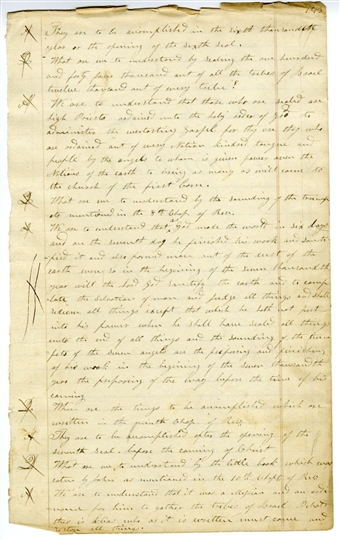 They are to be accomplished in the sixth thousandth
year or the opening of the sixth seal.
What are we to understand by sealing the one hundred
and forty four thousand out of all the tribes of Israel
twelve thousand out of every tribe?
We are to understand that those who are sealed are
high Priests ordained unto the holy order of God to
administer the everlasting Gospel for they are they who
are ordained out of every Nation kindred tongue and
people by the angels to whom is given power over the
Nations of the earth to bring as many as will come to
the church of the first born.
What are we to understand by the sounding of the trumpets
mentioned in the 8th Chap. of Rev.
We are to understand that as God made the world in six days
and on the seventh day he finished his work and sancti-
fied it and also formed man out of the dust of the
earth even so in the begining of the seven thousandth
year will the Lord God sanctify the earth and comp
lete the salvation of man and judge all things and shall
redeem all things except that which he hath not put
into his power when he shall have sealed all things
unto the end of all things and the sounding of the trum
pets of the seven angels are the prepairing and finishing
of his work in the begining of the seven thousandth
year the prepairing of the way before the time of his
coming
When are the things to be accomplished which are
written in the Chap. of Rev.
They are to be accomplished after the opening of the
seventh seal before the coming of Christ
What are we to understand by the little book which was
eaten by John as mentioned in the 10th Chapt of Rev
We are to understand that it was a mission and an ordi-
nance for him to gather the tribes of Israel. Behold
this is Elias who as it is written must come and
restore all things.